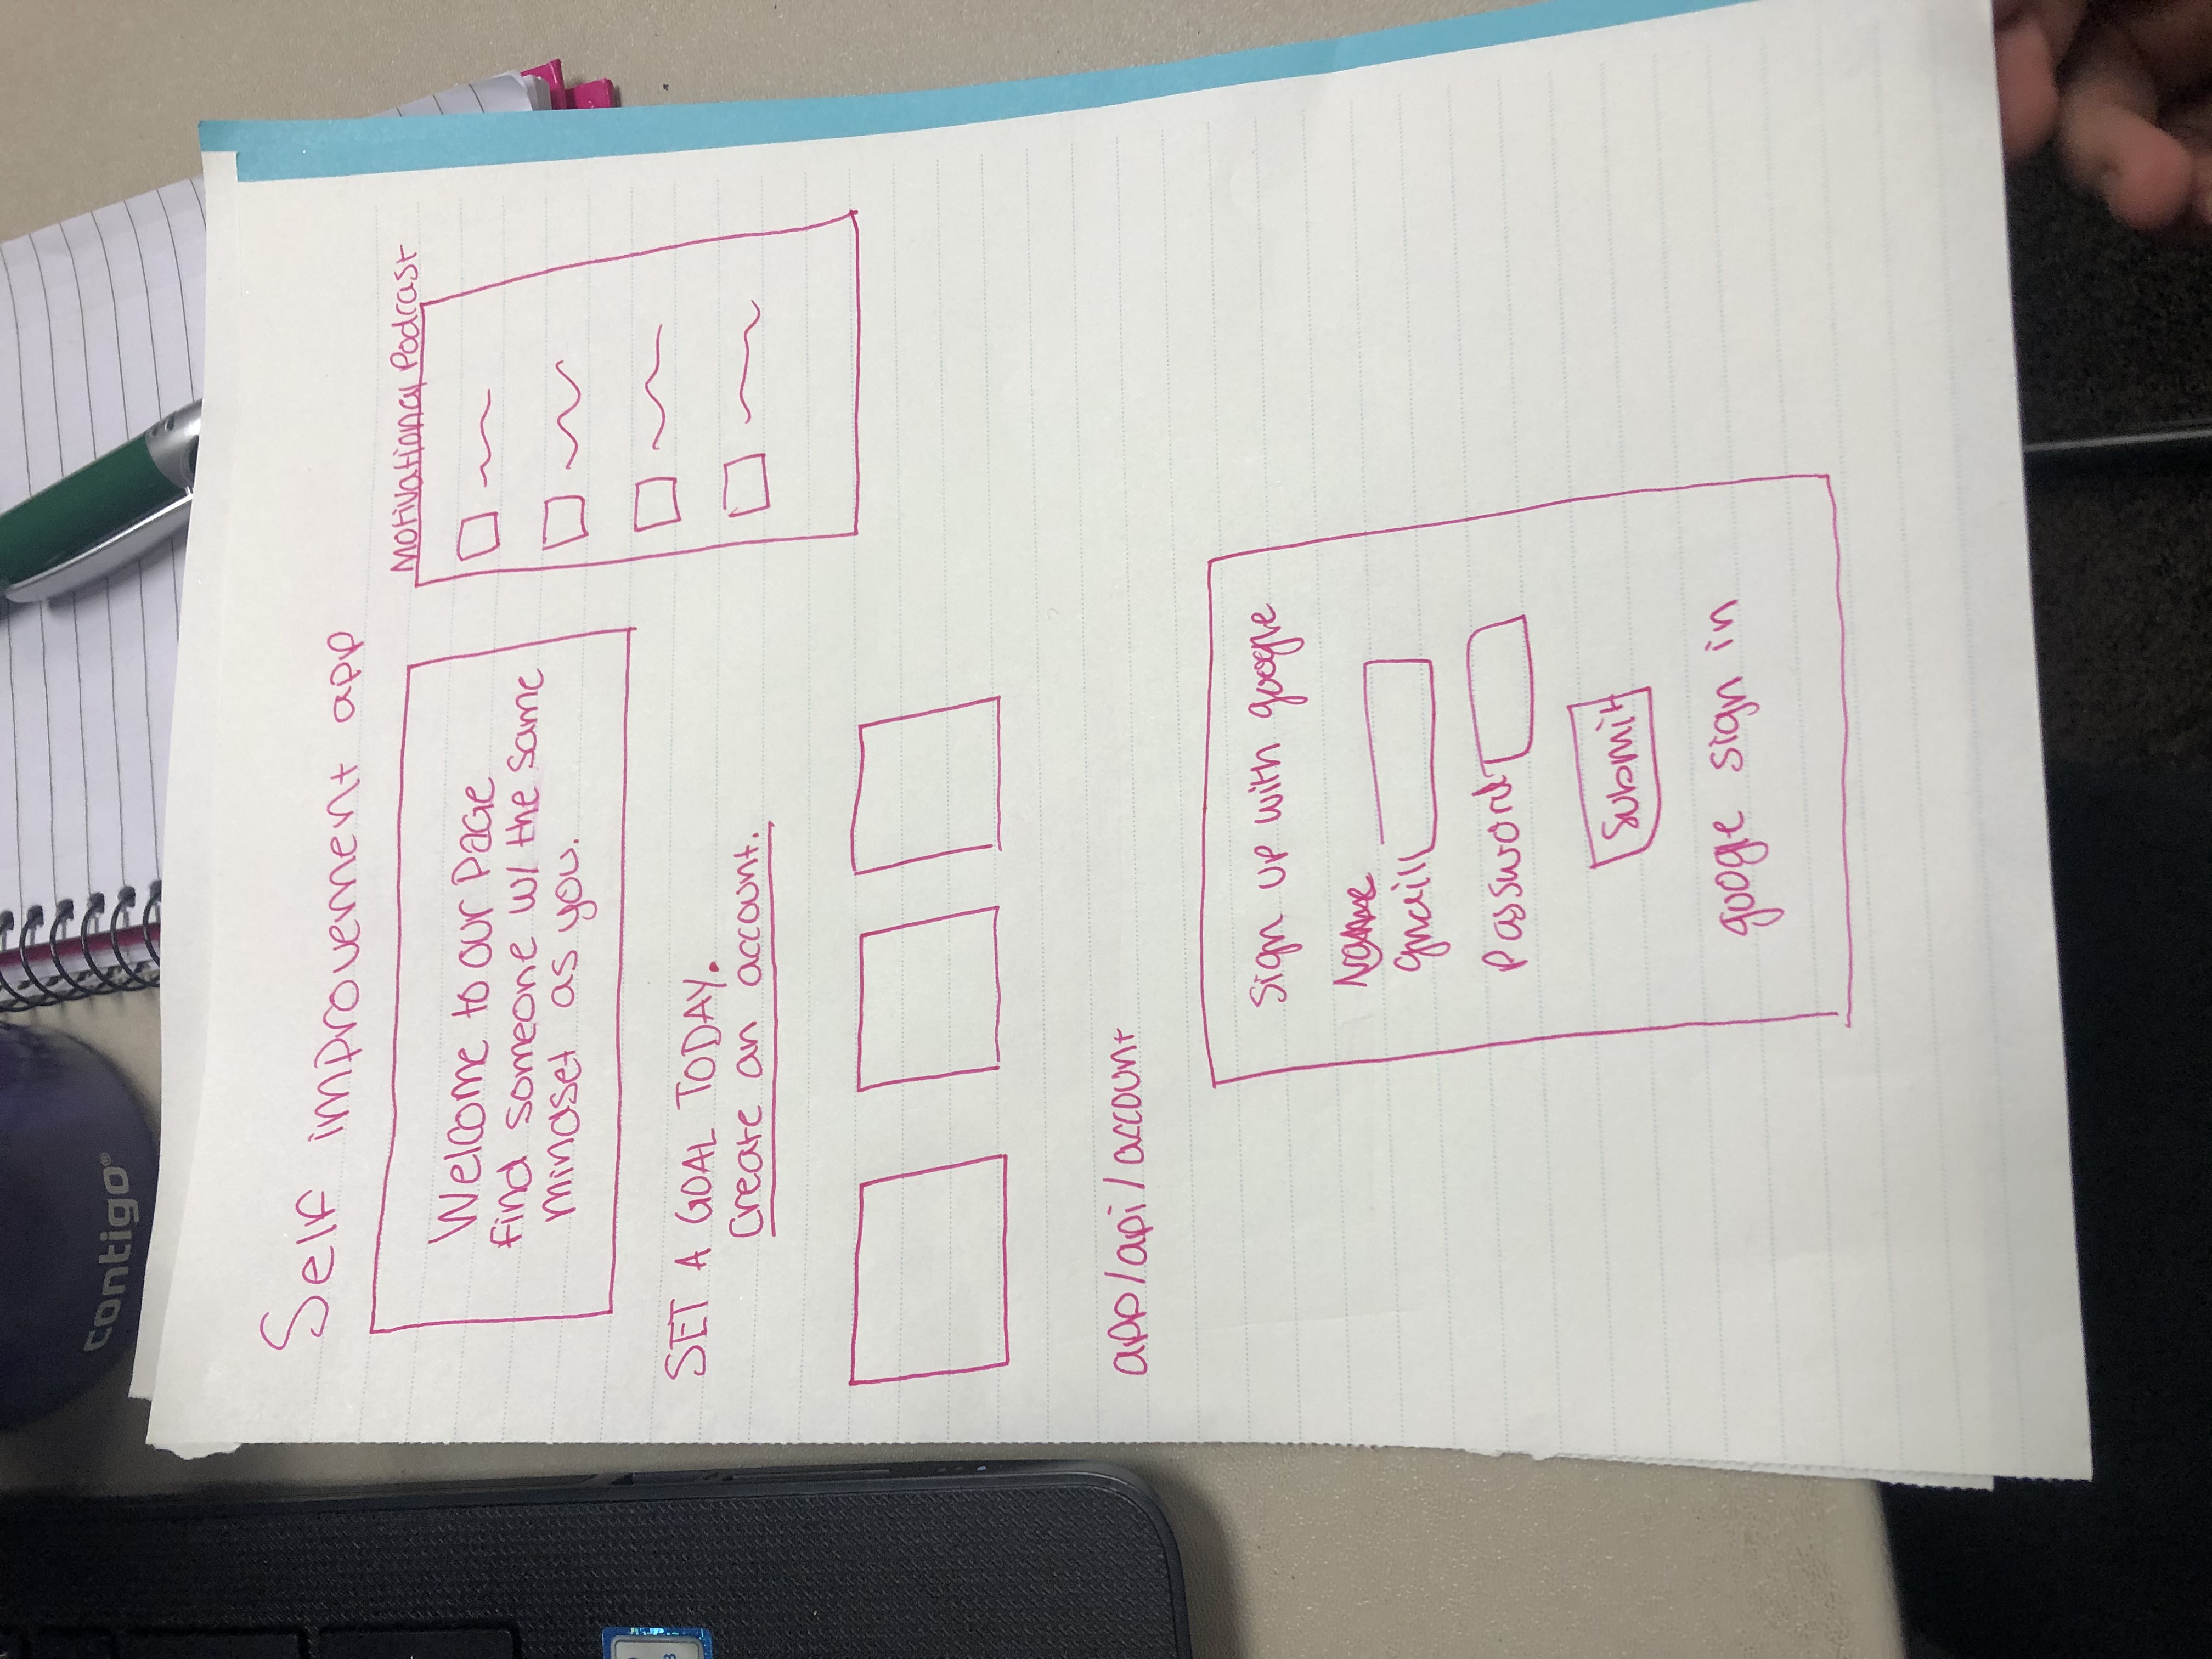 contigo®
Self improvement app
Welcome to our Page
find someone w/ the same
mindset as you.
Motivational Podcast
SET A GOAL TODAY.
Create an account.
app/api/account
Sign up with google
Name
gmail
Password
Submit
google sign in